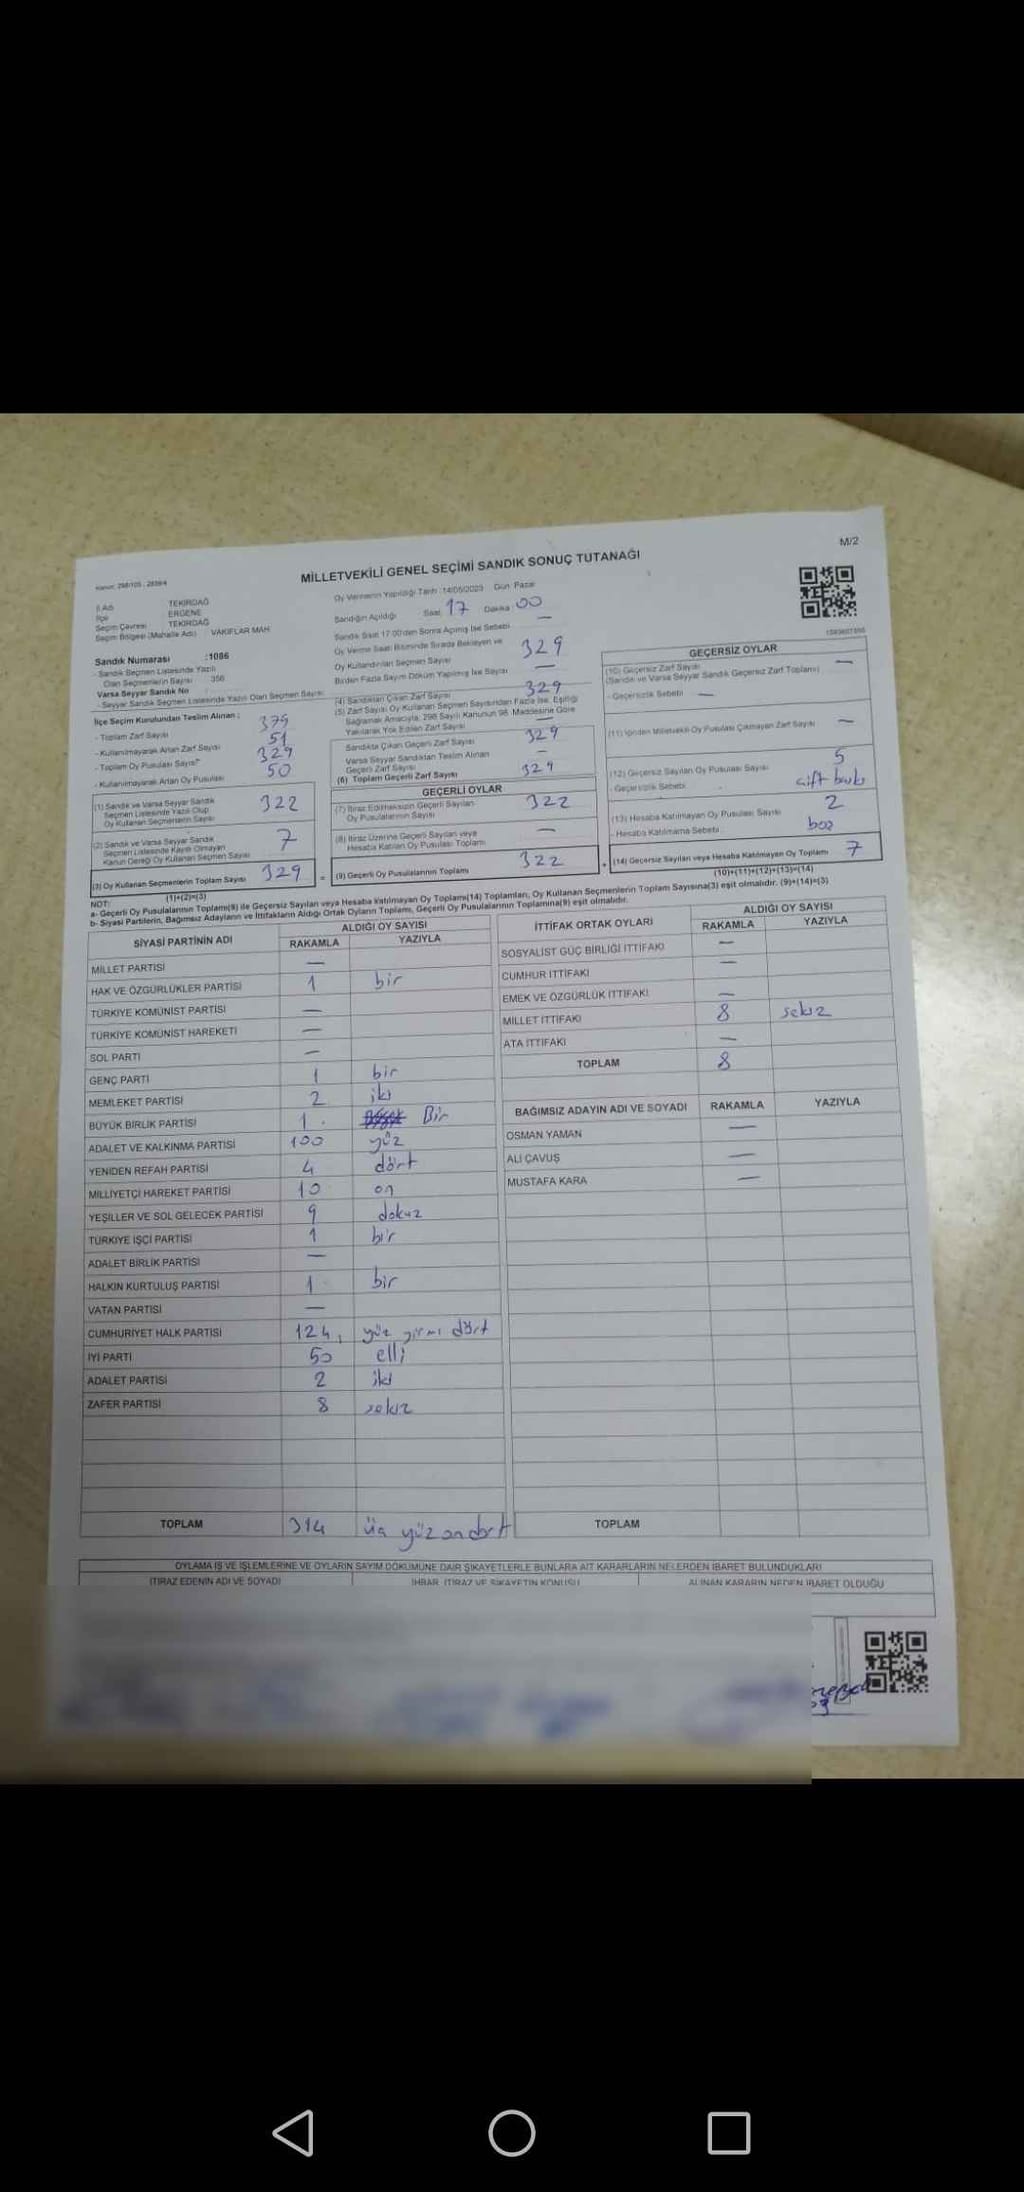 M/2
MİLLETVEKİLİ GENEL SEÇİMİ SANDIK SONUÇ TUTANAĞI
İl Adı TEKİRDAĞ
İlçe ERGENE
Seçim Çevresi TEKİRDAĞ
Seçim Bölgesi (Mahalle Adı) VAKIFLAR MAH
Sandık Numarası :1086
- Sandık Seçmen Listesinde Yazılı
Olan Seçmenlerin Sayısı 356
Varsa Seyyar Sandık No
- Seyyar Sandık Seçmen Listesinde Yazılı Olan Seçmen Sayısı
İlçe Seçim Kurulundan Teslim Alınan :
- Toplam Zarf Sayısı 379
- Kullanılmayarak Artan Zarf Sayısı 51
- Toplam Oy Pusulası Sayısı 329
- Kullanılmayarak Artan Oy Pusulası 50
(1) Sandık ve Varsa Seyyar Sandık
Seçmen Listesinde Yazılı Olup
Oy Kullanan Seçmenlerin Sayısı 322
(2) Sandık ve Varsa Seyyar Sandık
Seçmen Listesinde Kayıtlı Olmayan
Kanun Gereği Oy Kullanan Seçmen Sayısı 7
(3) Oy Kullanan Seçmenlerin Toplam Sayısı 329
(1)+(2)=(3)
Oy Vermenin Yapıldığı Tarih :14/05/2023 Gün Pazar
Sandığın Açıldığı Saat 17 Dakika 00
Sandık Saat 17:00'den Sonra Açılmış İse Sebebi —
Oy Verme Saati Bitiminde Sırada Bekleyen ve
Oy Kullandırılan Seçmen Sayısı 329
Birden Fazla Sayım Döküm Yapılmış İse Sayısı —
(4) Sandıktan Çıkan Zarf Sayısı 329
(5) Zarf Sayısı Oy Kullanan Seçmen Sayısından Fazla İse, Eşitliği
Sağlamak Amacıyla, 298 Sayılı Kanunun 98. Maddesine Göre
Yakılarak Yok Edilen Zarf Sayısı —
Sandıkta Çıkan Geçerli Zarf Sayısı 329
Varsa Seyyar Sandıktan Teslim Alınan
Geçerli Zarf Sayısı —
(6) Toplam Geçerli Zarf Sayısı 329
GEÇERLİ OYLAR
(7) İtiraz Edilmeksizin Geçerli Sayılan
Oy Pusulalarının Sayısı 322
(8) İtiraz Üzerine Geçerli Sayılan veya
Hesaba Katılan Oy Pusulası Toplamı —
(9) Geçerli Oy Pusulalarının Toplamı 322
GEÇERSİZ OYLAR
(10) Geçersiz Zarf Sayısı —
(Sandık ve Varsa Seyyar Sandık Geçersiz Zarf Toplamı)
- Geçersizlik Sebebi —
(11) İçinden Milletvekili Oy Pusulası Çıkmayan Zarf Sayısı —
(12) Geçersiz Sayılan Oy Pusulası Sayısı 5
- Geçersizlik Sebebi
(13) Hesaba Katılmayan Oy Pusulası Sayısı 2
- Hesaba Katılmama Sebebi boş
(14) Geçersiz Sayılan veya Hesaba Katılmayan Oy Toplamı 7
(10)+(11)+(12)+(13)=(14)
NOT:
a- Geçerli Oy Pusulalarının Toplamı(9) ile Geçersiz Sayılan veya Hesaba Katılmayan Oy Toplamı(14) Toplamları, Oy Kullanan Seçmenlerin Toplam Sayısına(3) eşit olmalıdır. (9)+(14)=(3)
b- Siyasi Partilerin, Bağımsız Adayların ve İttifakların Aldığı Ortak Oyların Toplamı, Geçerli Oy Pusulalarının Toplamına(9) eşit olmalıdır.
SİYASİ PARTİNİN ADI ALDIĞI OY SAYISI
RAKAMLA YAZIYLA
MİLLET PARTİSİ —
HAK VE ÖZGÜRLÜKLER PARTİSİ 1 bir
TÜRKİYE KOMÜNİST PARTİSİ —
TÜRKİYE KOMÜNİST HAREKETİ —
SOL PARTİ —
GENÇ PARTİ 1 bir
MEMLEKET PARTİSİ 2 iki
BÜYÜK BİRLİK PARTİSİ 1 Bir
ADALET VE KALKINMA PARTİSİ 100 yüz
YENİDEN REFAH PARTİSİ 4 dört
MİLLİYETÇİ HAREKET PARTİSİ 10 on
YEŞİLLER VE SOL GELECEK PARTİSİ 9 dokuz
TÜRKİYE İŞÇİ PARTİSİ 1 bir
ADALET BİRLİK PARTİSİ —
HALKIN KURTULUŞ PARTİSİ 1 bir
VATAN PARTİSİ —
CUMHURİYET HALK PARTİSİ 124 yüz yirmi dört
İYİ PARTİ 50 elli
ADALET PARTİSİ 2 iki
ZAFER PARTİSİ 8 sekiz
TOPLAM 314 üç yüz on dört
İTTİFAK ORTAK OYLARI ALDIĞI OY SAYISI
RAKAMLA YAZIYLA
SOSYALİST GÜÇ BİRLİĞİ İTTİFAKI —
CUMHUR İTTİFAKI —
EMEK VE ÖZGÜRLÜK İTTİFAKI —
MİLLET İTTİFAKI 8 sekiz
ATA İTTİFAKI —
TOPLAM 8
BAĞIMSIZ ADAYIN ADI VE SOYADI RAKAMLA YAZIYLA
OSMAN YAMAN —
ALİ ÇAVUŞ —
MUSTAFA KARA —
TOPLAM
OYLAMA İŞ VE İŞLEMLERİNE VE OYLARIN SAYIM DÖKÜMÜNE DAİR ŞİKAYETLERLE BUNLARA AİT KARARLARIN NELERDEN İBARET BULUNDUKLARI
İTİRAZ EDENİN ADI VE SOYADI İHBAR, İTİRAZ VE ŞİKAYETİN KONUSU ALINAN KARARIN NEDEN İBARET OLDUĞU